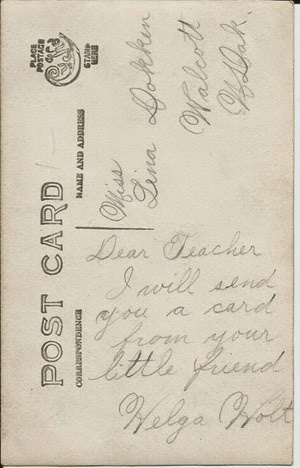 PLACE
POSTAGE
STAMP
HERE
POST CARD
CORRESPONDENCE
NAME AND ADDRESS
Miss
Lina Dokken
Walcott
N Dak.
Dear Teacher
I will send
you a card
from your
little friend
Helga Holt